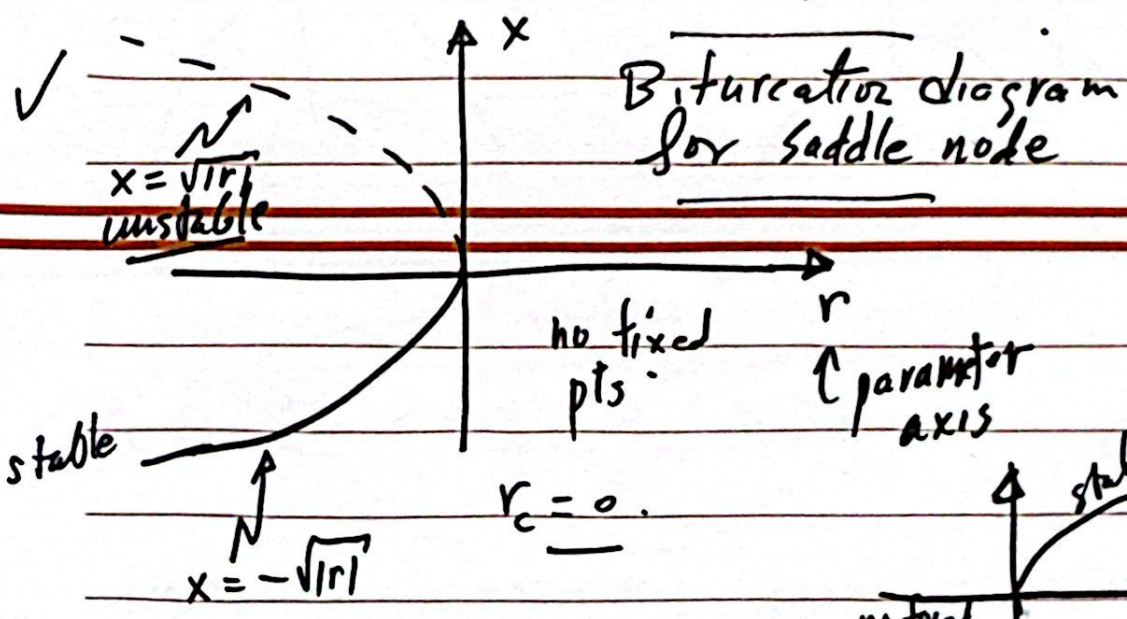 ✓
x
Bifurcation diagram
for saddle node
x = √|r|
unstable
r
no fixed
pts.
↑ parameter
axis
stable
r_c = 0.
x = -√|r|